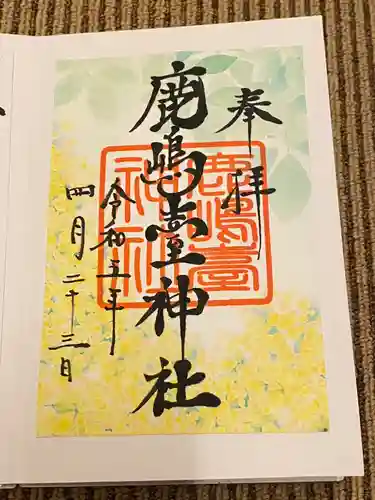 奉拝
鹿嶋臺神社
令和五年
四月二十三日
鹿嶋臺
神社